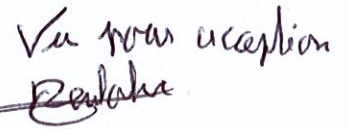 Vu pour acception